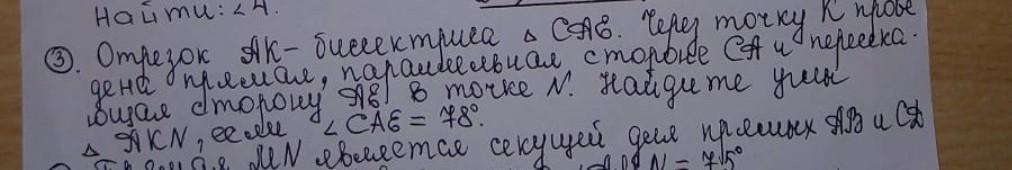 Найти: ∠А.
③. Отрезок АК - биссектриса △ САЕ. Через точку К прове
дена прямая, параллельная стороне СА и пересека-
ющая сторону АЕ в точке N. Найдите углы
△ АКN, если ∠САЕ = 78°.
MN является секущей для прямых АВ и СD
N = 75°